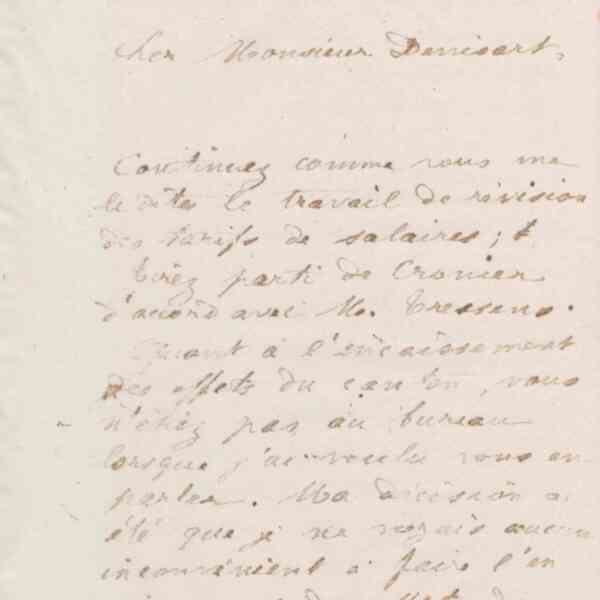 Cher Monsieur Denisart,
Continuez comme vous me
le dites le travail de révision
des tarifs de salaires; &
tirez parti de Cronier
d'accord avec M. Pressens.
Quant à l'encaissement
des effets du canton, vous
n'étiez pas au bureau
lorsque j'ai voulu vous en
parler. Ma décision a
été que je ne voyais aucun
inconvénient à faire l'en